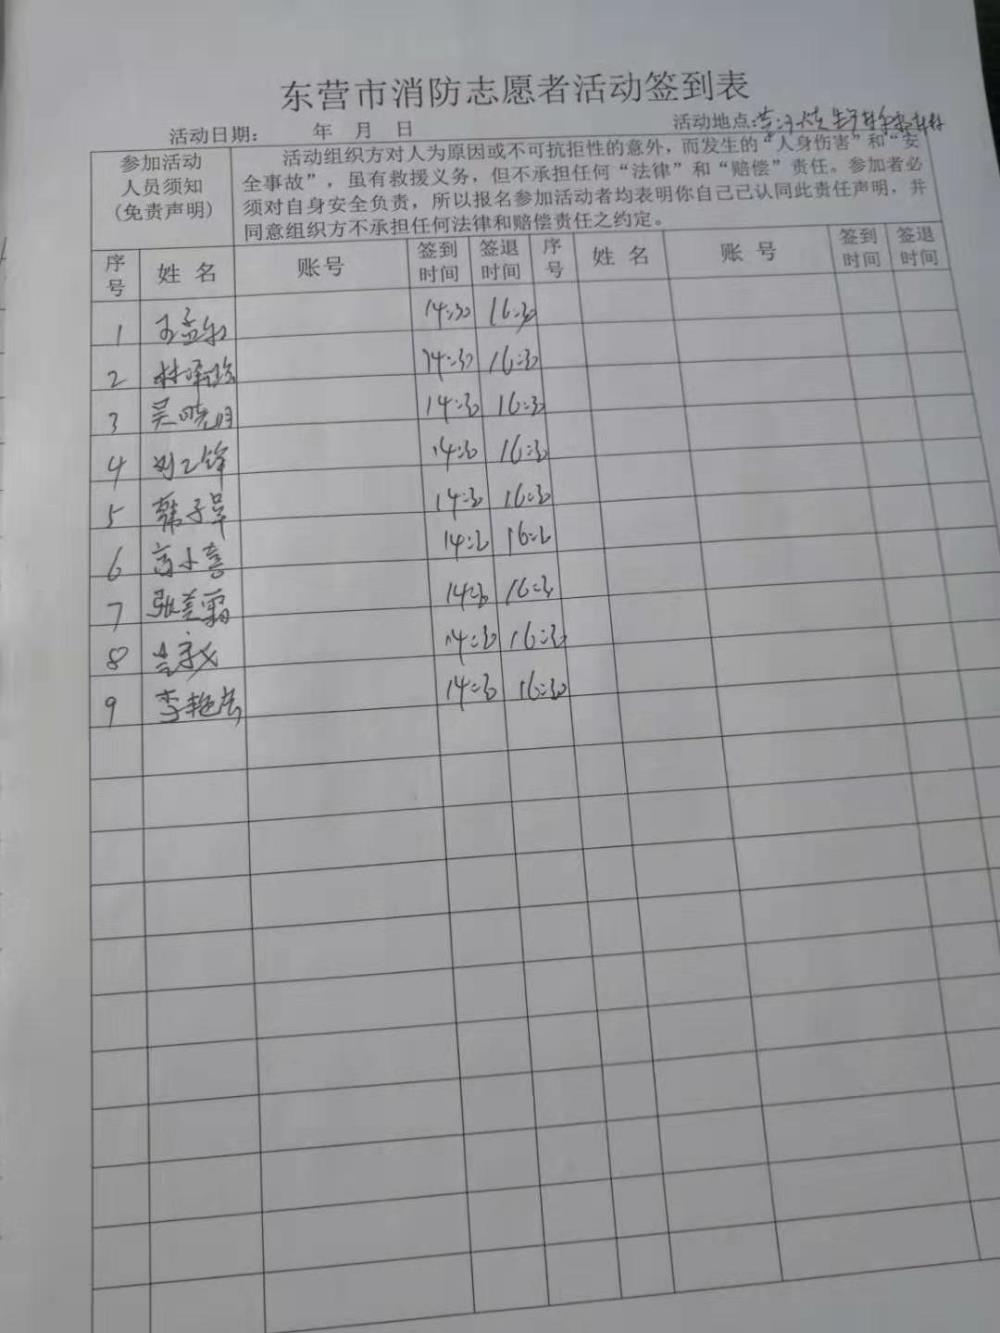 东营市消防志愿者活动签到表
活动日期： 年 月 日 活动地点:
参加活动
人员须知
(免责声明)
活动组织方对人为原因或不可抗拒性的意外，而发生的“人身伤害”和“安
全事故”，虽有救援义务，但不承担任何“法律”和“赔偿”责任。参加者必
须对自身安全负责，所以报名参加活动者均表明你自己已认同此责任声明，并
同意组织方不承担任何法律和赔偿责任之约定。
序号 姓名 账号 签到时间 签退时间 序号 姓名 账号 签到时间 签退时间
1 14:30 16:30
2 14:30 16:30
3 吴晓明 14:30 16:30
4 14:30 16:30
5 韩子 14:30 16:30
6 高小喜 14:3 16:3
7 张美 14:30 16:30
8 14:30 16:30
9 李艳 14:30 16:30